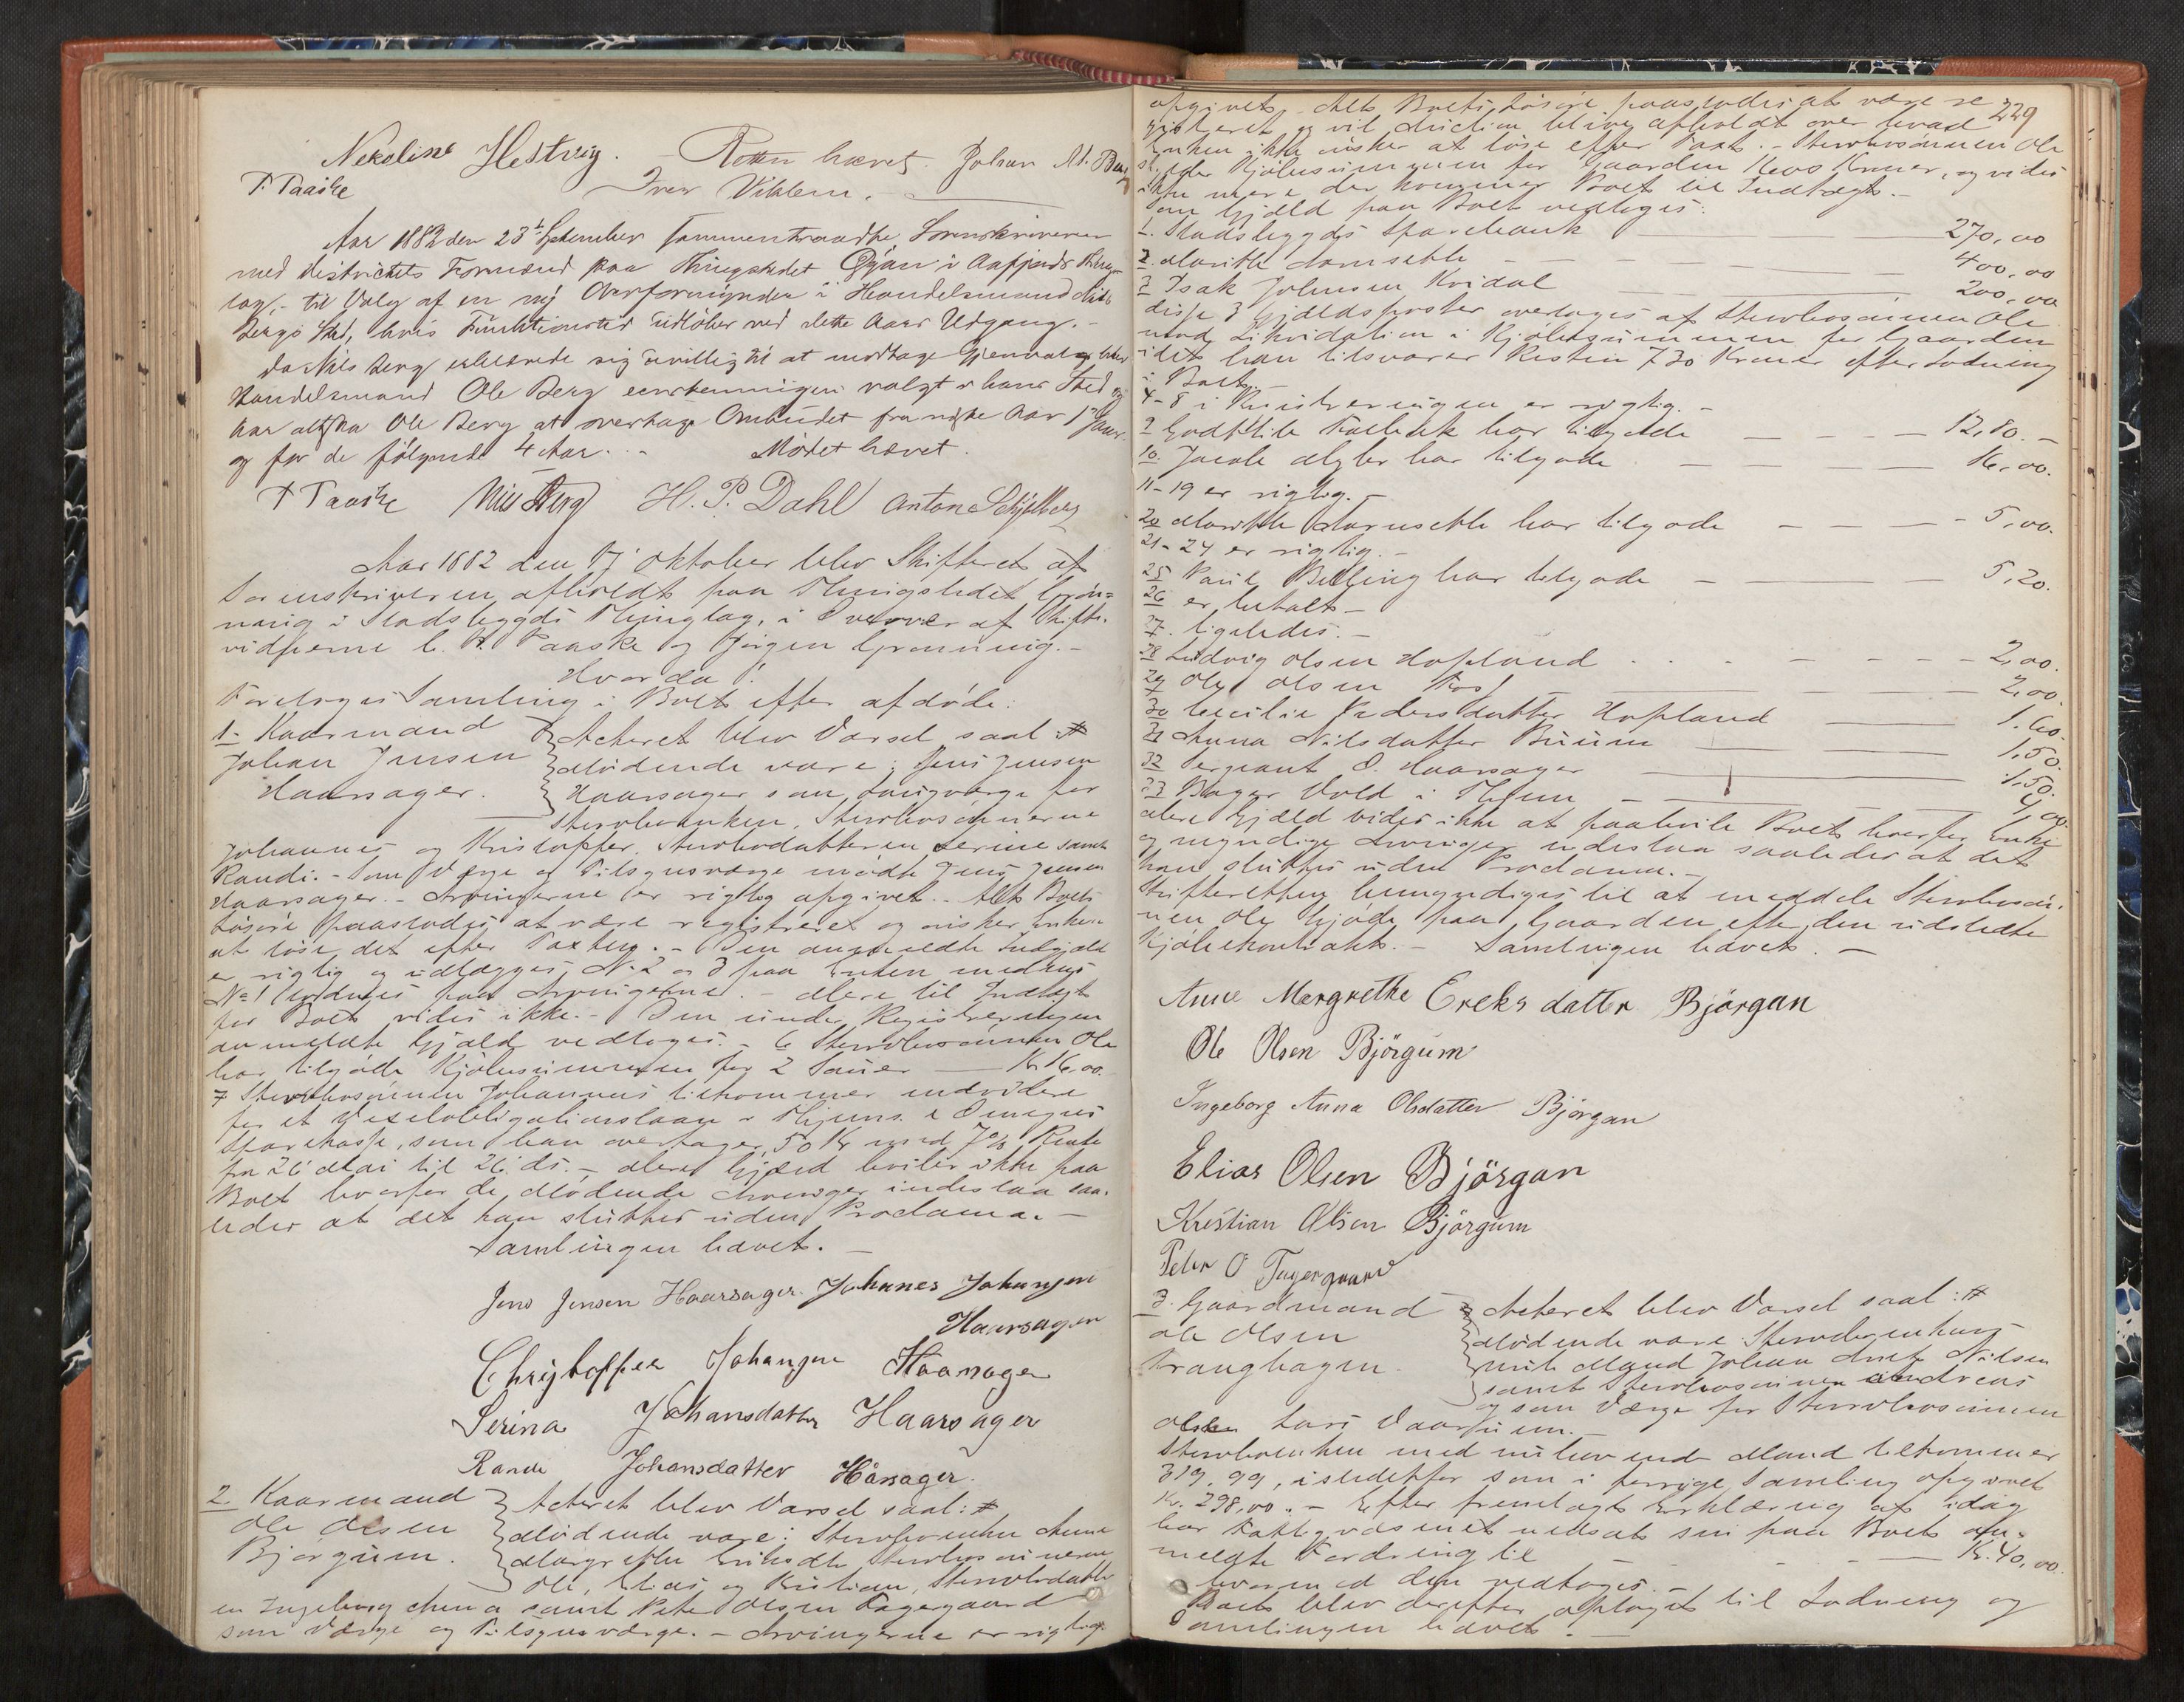 Nekoline Hestvig. Retten hævet. Johan M. Berg
P. Paaske Iver Viklem.
Aar 1882 den 23de September sammentraadte Sorenskriveren
med Districtets Formænd paa Thingstedet Øyan i Aafjords Thing-
lag, til Valg af en ny Overformynder i Handelsmand Nils
Bergs Sted, hvis Funktionstid udløber ved dette Aars Udgang. -
Da Nils Berg erklærede sig uvillig til at modtage Gjenvalg blev
Handelsmand Ole Berg eenstemmigen valgt i hans Sted og
har altsaa Ole Berg at overtage Ombudet fra næste Aar 1 Januar
og for de følgende 4 Aar. - Mødet hævet.
P Paaske Nils Berg H. P. Dahl Anton Schjelberg
Aar 1882 den 17 Oktober blev Skifteret af
Sorenskriveren afholdt paa Thingstedet Grøn-
ning i Stadsbygds Thinglag, i Overvær af Skifte-
vidnerne C. A. Paaske og Jørgen Grønning. -
Hvorda!
Foretoges Samling i Boet efter afdøde:
1. Kaarmand
Johan Jensen
Haarsager.
Acteret blev Varsel saal:
Mødende vare: Jens Jensen
Haarsager som Laugværge for
Stervboenken, Stervbosønnerne
Johannes og Kristoffer, Stervbodatteren Serine samt
Randi. - Som Værge og Tilsynsværge mødte Jens Jensen
Haarsager. - Arvingerne er rigtig opgivet. - Alt Boets
Løsøre paastodes at være registreret og ønsker Enken
at løse det efter Taxten. - Den anmeldte Indgjæld
er rigtig og udlægges No 2 og 3 paa Enken medens
No 1 fordeles paa Arvingerne. - Mere til Indtægt
for Boet vides ikke. - Den under Registreringen
anmeldte Gjæld vedtoges. - 6 Stervbosønnen Ole
har tilgode Kjøbesummen for 2 Sauer — Kr 16,00.
7 Stervbosønnen Johannes tilkommer endvidere
for et Vexelobligationslaan i Thjems & Omegns
Sparekasse, som han overtager, 50 Kr med 7% Rente
fra 26 Mai til 26 ds. - Mere Gjæld hviler ikke paa
Boet hvorfor de mødende Arvinger indestaa saa-
ledes at det kan sluttes uden Proclama. -
Samlingen hævet. -
Jens Jensen Haarsager. Johanes Johansen
Haarsager
Christoffer Johansen Haarsager
Serina Johansdatter Haarsager
Randi Johansdatter Hårsager.
2. Kaarmand
Ole Olsen
Bjørgum.
Acteret blev Varsel saal:
Mødende vare: Stervboenken Anne
Margrethe Eriksdtr Stervbosønnerne
Ole, Elias og Kristian, Stervbodatter
en Ingeborg Anna samt Peter Olsen Fagergaard
som Værge og Tilsynsværge. - Arvingerne er rigtig
229
opgivet. Alt Boets Løsøre paastodes at være re-
gistreret og vil Auction blive afholdt over hvad
Enken ikke ønsker at løse efter Taxt. - Stervbosønnen Ole
skylder Kjøbesummen for Gaarden 1600 Kroner, og vides
ikke mere der kommer Boet til Indtægt. -
Som Gjæld paa Boet vedtoges:
1. Stadsbygds Sparebank — 270,00
2. Marithe — 400,00
3 Isak Johnsen Kvidal — 200,00
disse 3 Gjældsposter overtages af Stervbosønnen Ole
mod Likvidation i Kjøbesummen for Gaarden
idet han tilsvarer Resten 730 Kroner efter Lodning
i Boet. -
4-8 i Registreringen er rigtig. -
9 Godtlib Falbæk har tilgode — 12,80. -
10 Jacob har tilgode — 16,00.
11-19 er rigtig. -
20 Marithe har tilgode — 5,00.
21-24 er rigtig. -
25 Paul Belling har tilgode — 5,20.
26 er betalt. -
27. ligeledes. -
28 Ludvig Olsen Hopland — 2,00.
29 Ole Olsen — 2,00
30 Cecilie Pedersdatter Hopland — 1.60.
31 Anna Nilsdatter Buum — 1,50.
32 Sergeant O. Haarsager — 1.50.
33 Bager Vold i Thjem — 4,00.
Mere Gjæld vides ikke at paahvile Boet hvorfor Enke
og myndige Arvinger indestaa saaledes at det
kan sluttes uden Proclama. -
Skifteretten bemyndiges til at meddele Stervbosøn-
nen Ole Skjøde paa Gaarden efter den udstedte
Kjøbekontrakt. - Samlingen hævet. -
Anne Mergrethe Ereks datter Bjørgan
Ole Olsen Björgum
Ingeborg Anna Olsdatter Bjørgan
Elias Olsen Bjørgan
Kristian Olsen Bjørgum
Peter O Fagergaard
3. Gaardmand
Ole Olsen
Tranghagen.
Acteret blev Varsel saal:
Mødende vare: Stervboenkens
nuv. Mand Johan Arnt Nilsen
samt Stervbosønnen Andreas
og som Værge for Stervbosønnen
Lars
Stervboenken med nulevende Mand tilkommer
319,99, istedetfor som i forrige Samling opgivet
Kr. 298,00. - Efter fremlagt Erklæring af idag
har Fattigvæsenet nedsat sin paa Boet an-
meldte Fordring til — Kr. 40,00.
hvormed den vedtoges. -
Boet blev derefter optaget til Lodning og
Samlingen hævet. -